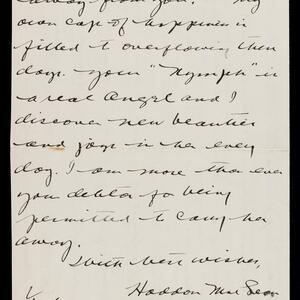 away from you. My
own cup of happiness is
filled to overflowing these
days. your "Nymph" is
a real Angel and I
discover new beauties
and joys in her every
day. I am more than ever
your debtor for being
permitted to carry her
away.
With best wishes,
Haddon